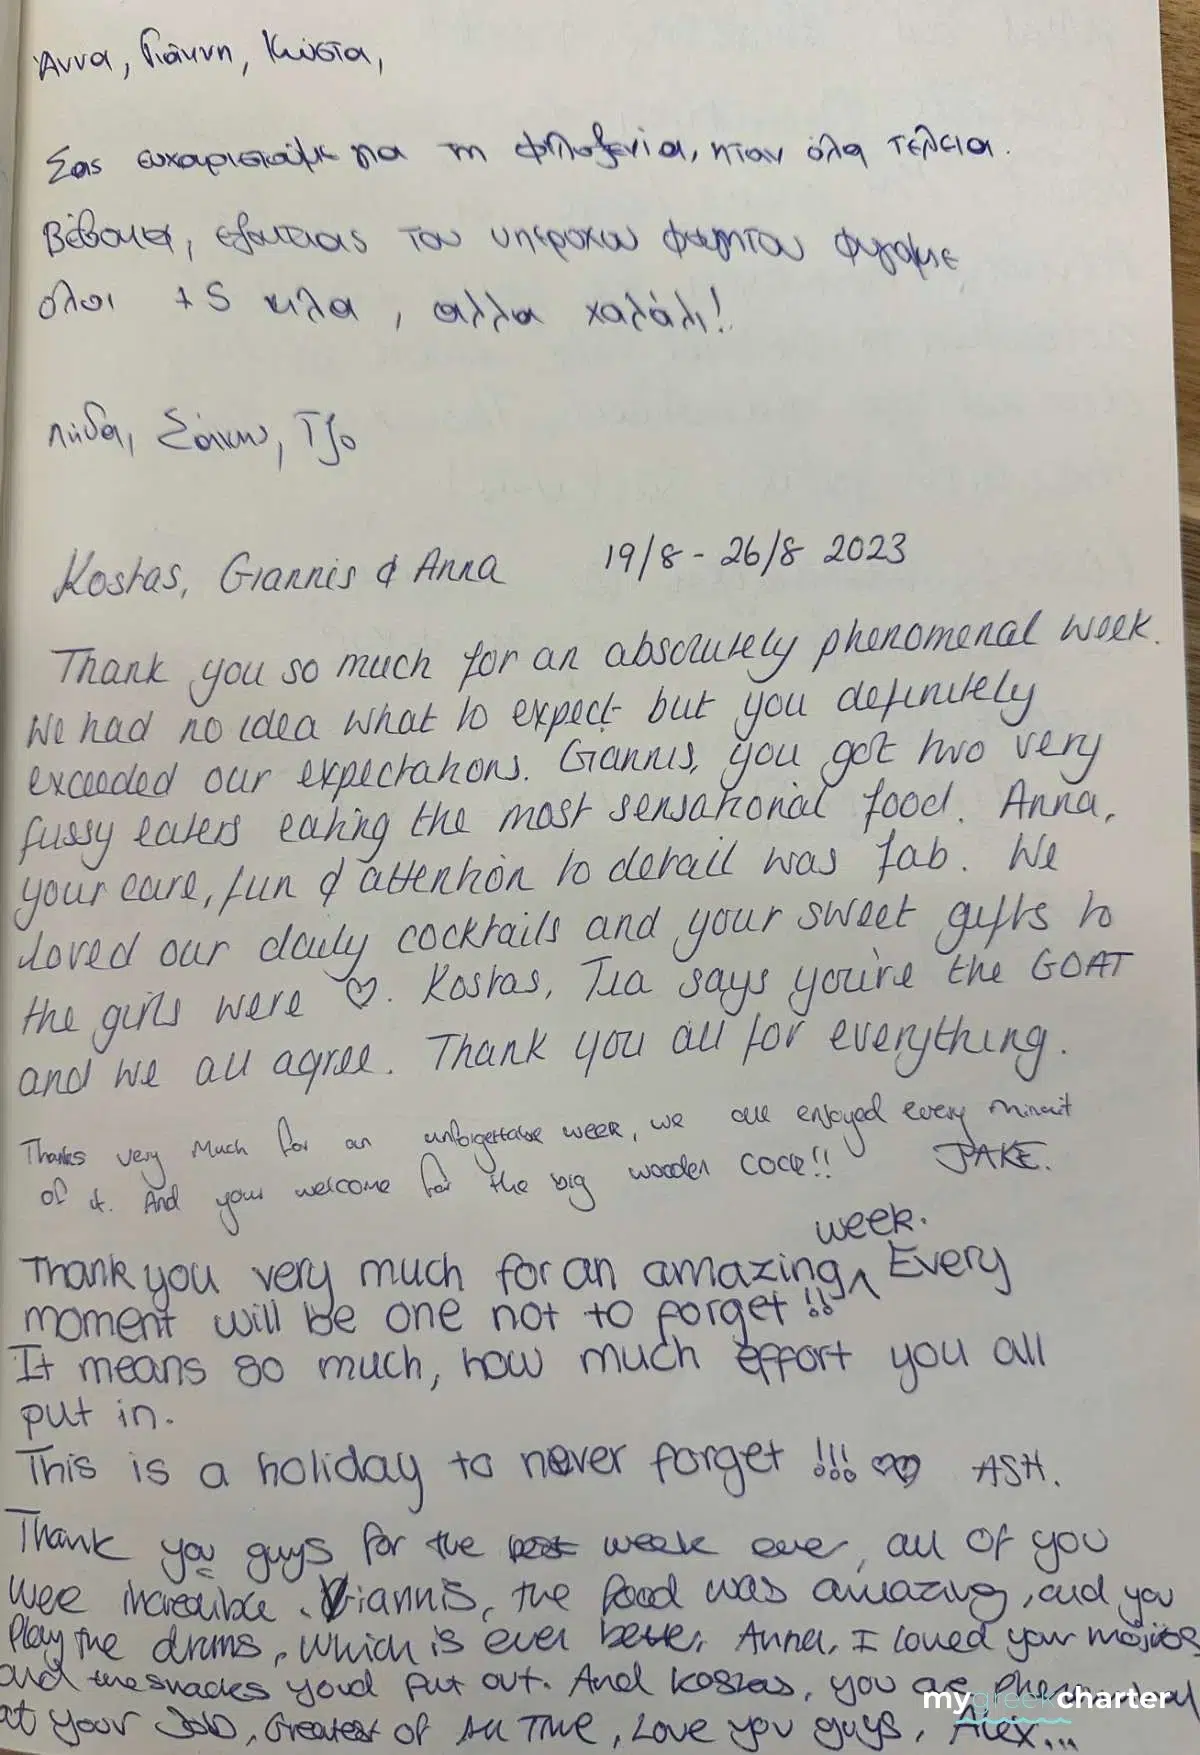 Άννα, Γιάννη, Κώστα,
Σας ευχαριστούμε για τη φιλοξενία, ηταν όλα τέλεια.
Βέβαια, εξαιτιας του υπεροχου φαγητου φυγαμε
όλοι +5 κιλα, αλλα χαλάλι!
Λήδα, Σάκης, Τζο
Kostas, Giannis & Anna 19/8 - 26/8 2023
Thank you so much for an absolutely phenomenal week.
We had no idea what to expect but you definitely
exceeded our expectations. Giannis, you got two very
fussy eaters eating the most sensational food. Anna,
your care, fun & attention to detail was fab. We
loved our daily cocktails and your sweet gifts to
the girls were ♡. Kostas, Tia says you're the GOAT
and we all agree. Thank you all for everything.
Thanks very much for an unforgettable week, we all enjoyed every minuit
of it. And your welcome for the big wooden cock!! JAKE.
week.
Thank you very much for an amazing ^ Every
moment will be one not to forget!!
It means so much, how much effort you all
put in.
This is a holiday to never forget!!! ♡♡ ASH.
Thank you guys for the best week ever, all of you
were incredible. Giannis, the food was amazing, and you
play the drums, which is even better, Anna, I loved your mojitos
and the snacks you'd put out. And Kostas, you are
at your job, Greatest of All Time, Love you guys, Alex...
mygreekcharter